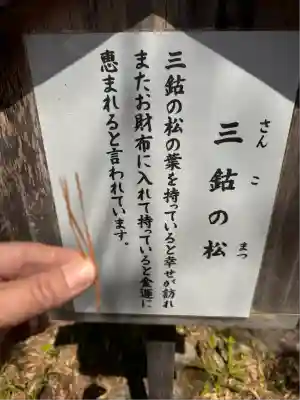 三鈷の松
さんこ　まつ
三鈷の松の葉を持っていると幸せが訪れ
またお財布に入れて持っていると金運に
恵まれると言われています。